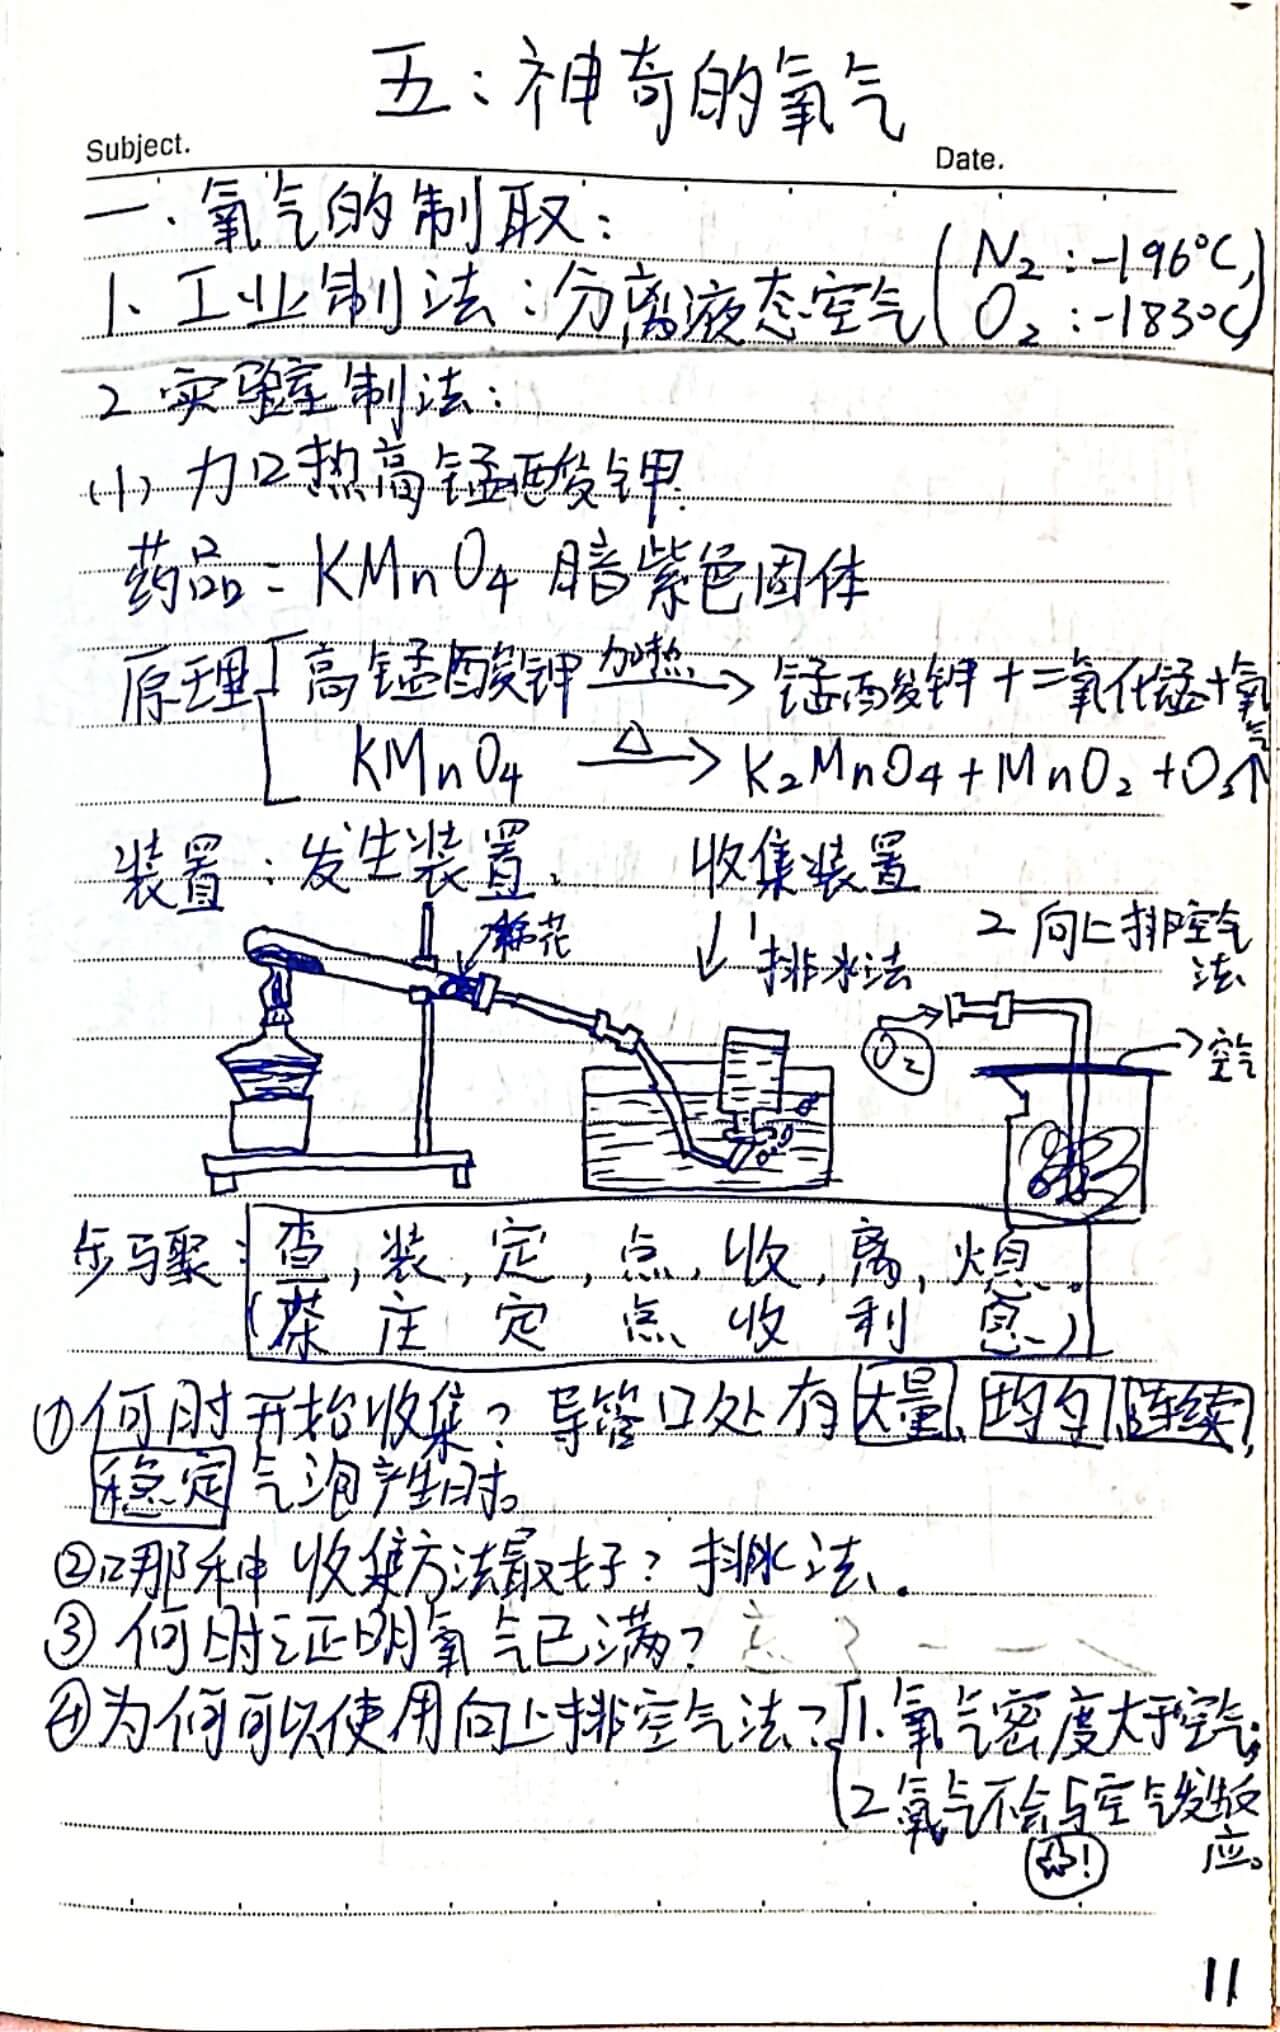 五：神奇的氧气
Subject.
Date.
一、氧气的制取：
1、工业制法：分离液态空气(N₂：-196℃, O₂：-183℃)
2 实验室制法：
(1) 加热高锰酸钾.
药品：KMnO₄ 暗紫色固体
原理 高锰酸钾 加热→ 锰酸钾+二氧化锰+氧气
KMnO₄ △→ K₂MnO₄+MnO₂+O₂↑
装置：发生装置、 收集装置
棉花
↓ 1 排水法
2 向上排空气法
O₂
→空气
步骤：查，装，定，点，收，离，熄。
(茶 庄 定 点 收 利 息.)
①何时开始收集？导管口处有大量、均匀、连续、
稳定气泡产生时。
②哪种收集方法最好？排水法.
③何时证明氧气已满？忘了
④为何可以使用向上排空气法？1.氧气密度大于空气；
2氧气不会与空气发生反应。
☆!
11